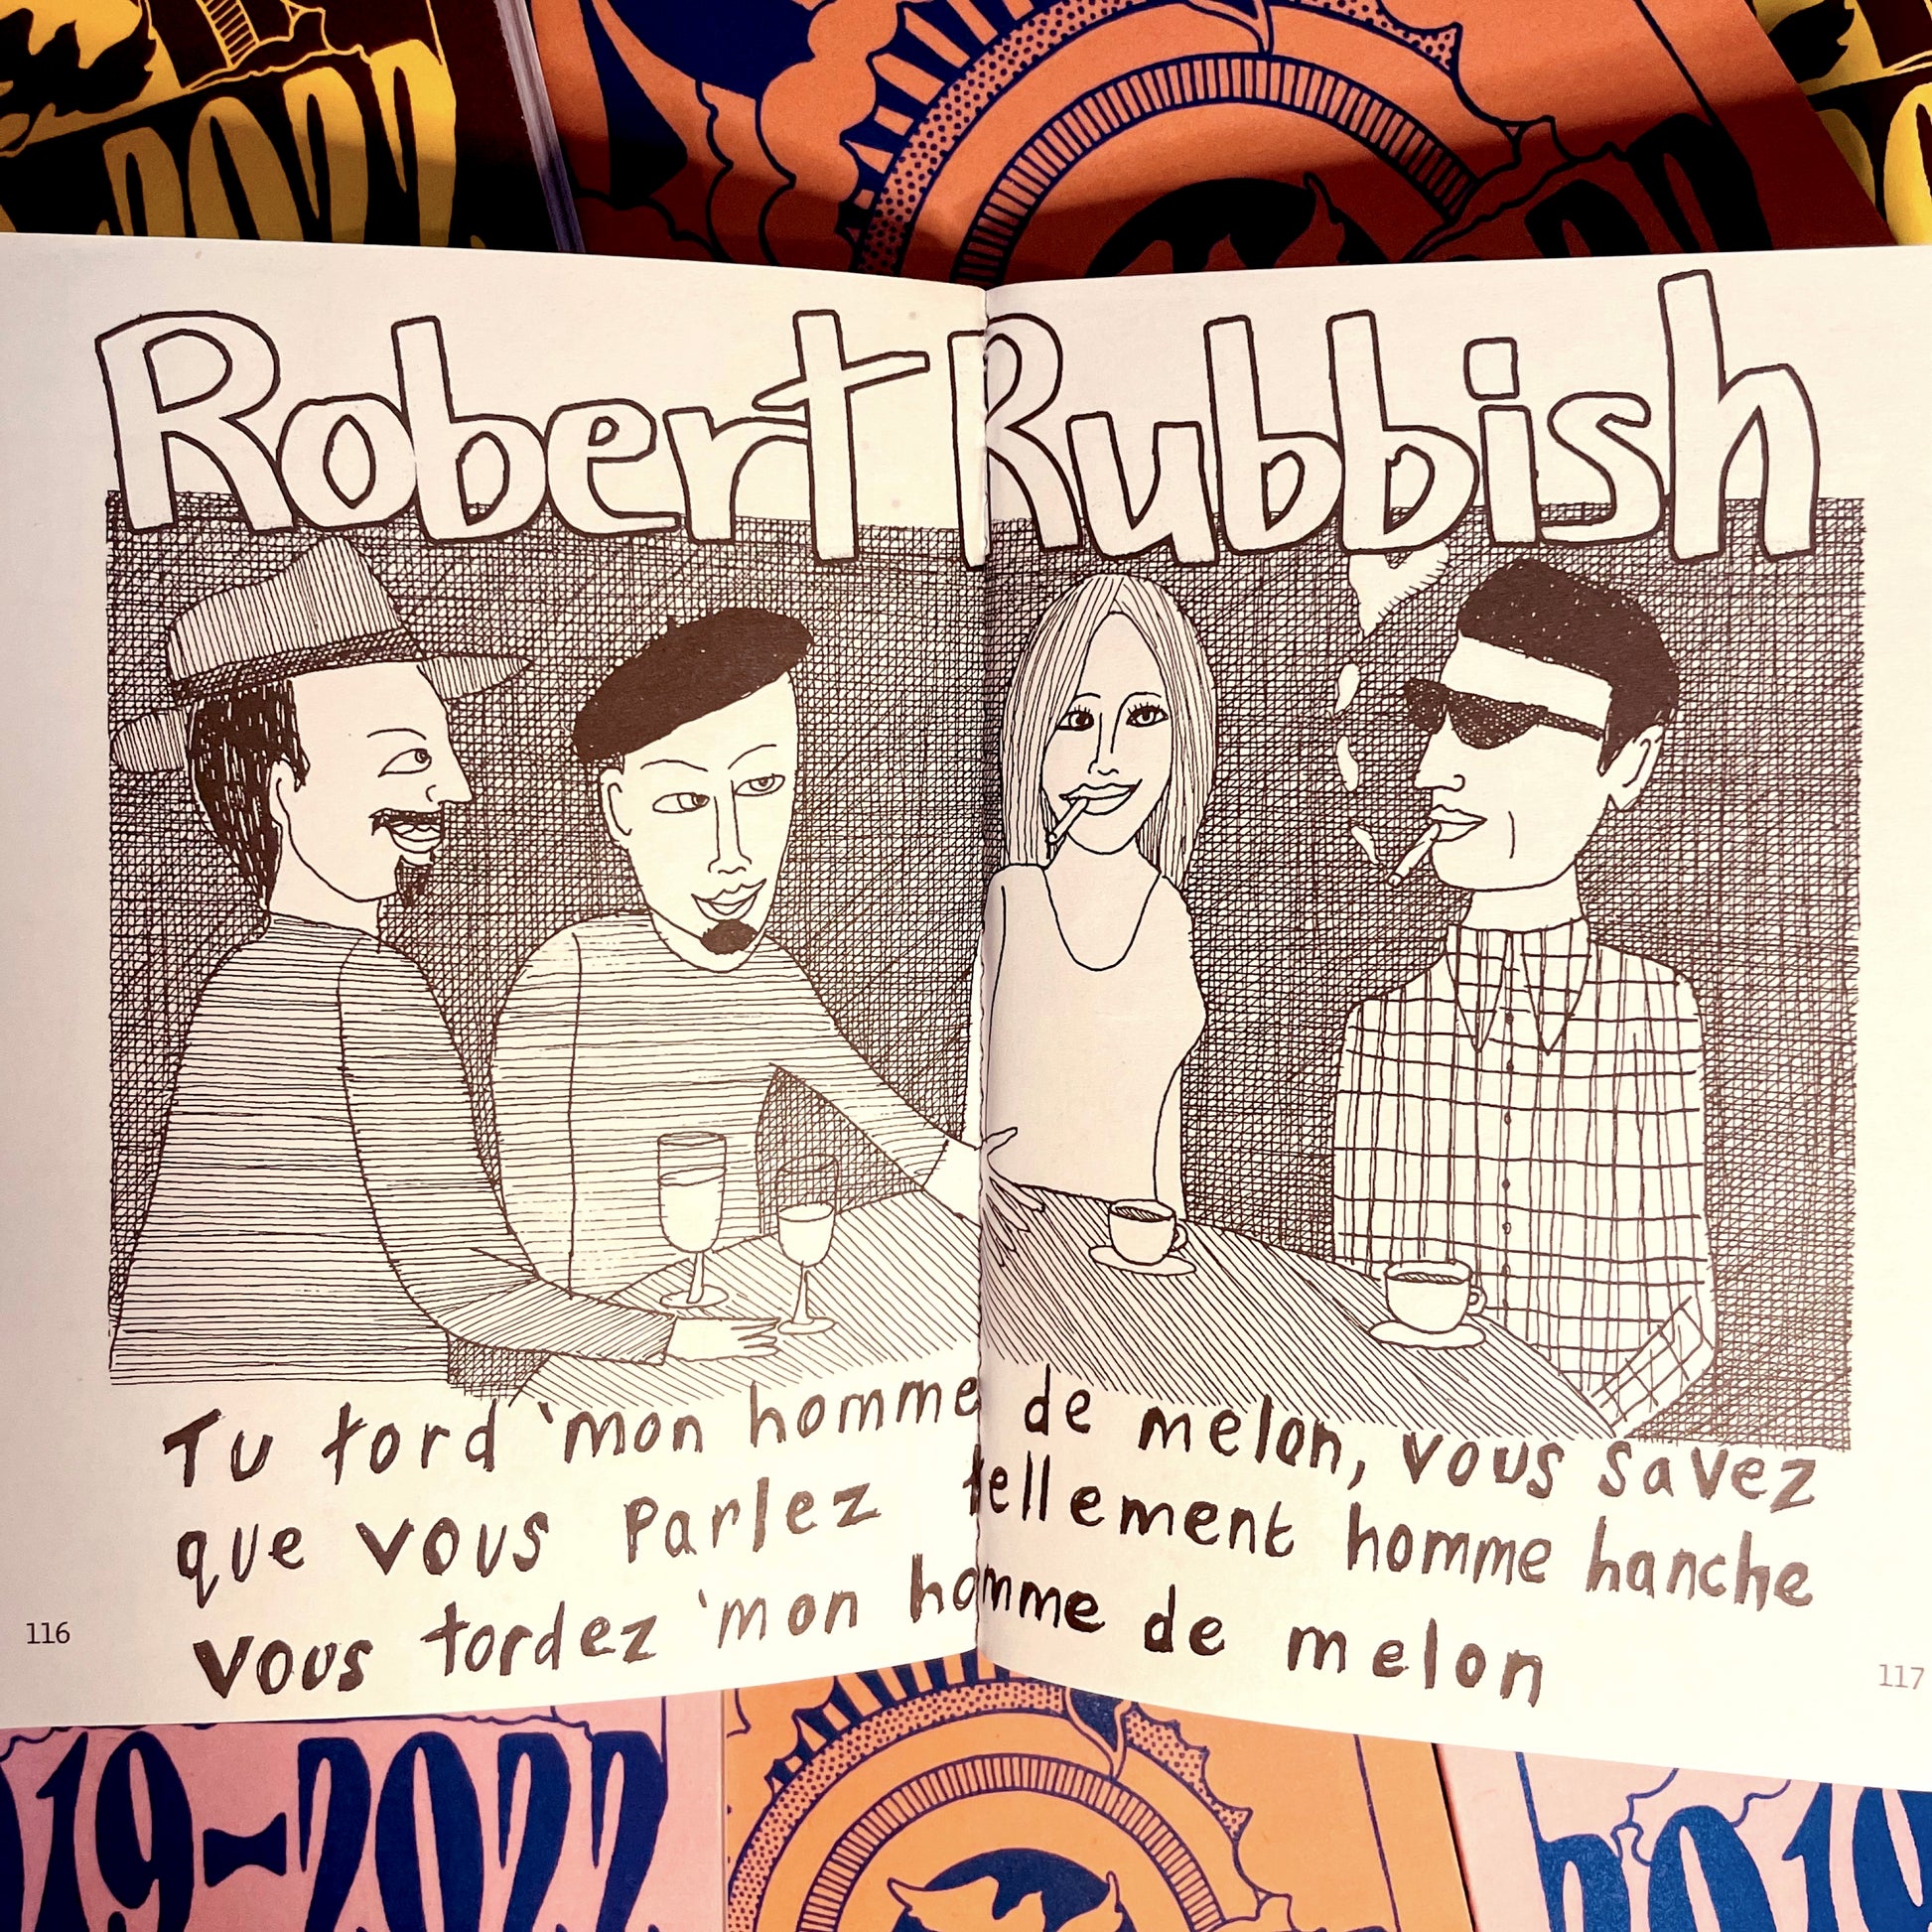 2022
Robert Rubbish
Tu tord 'mon homme de melon, vous savez
que vous Parlez tellement homme hanche
vous tordez 'mon homme de melon
116
117
019-2022
2019